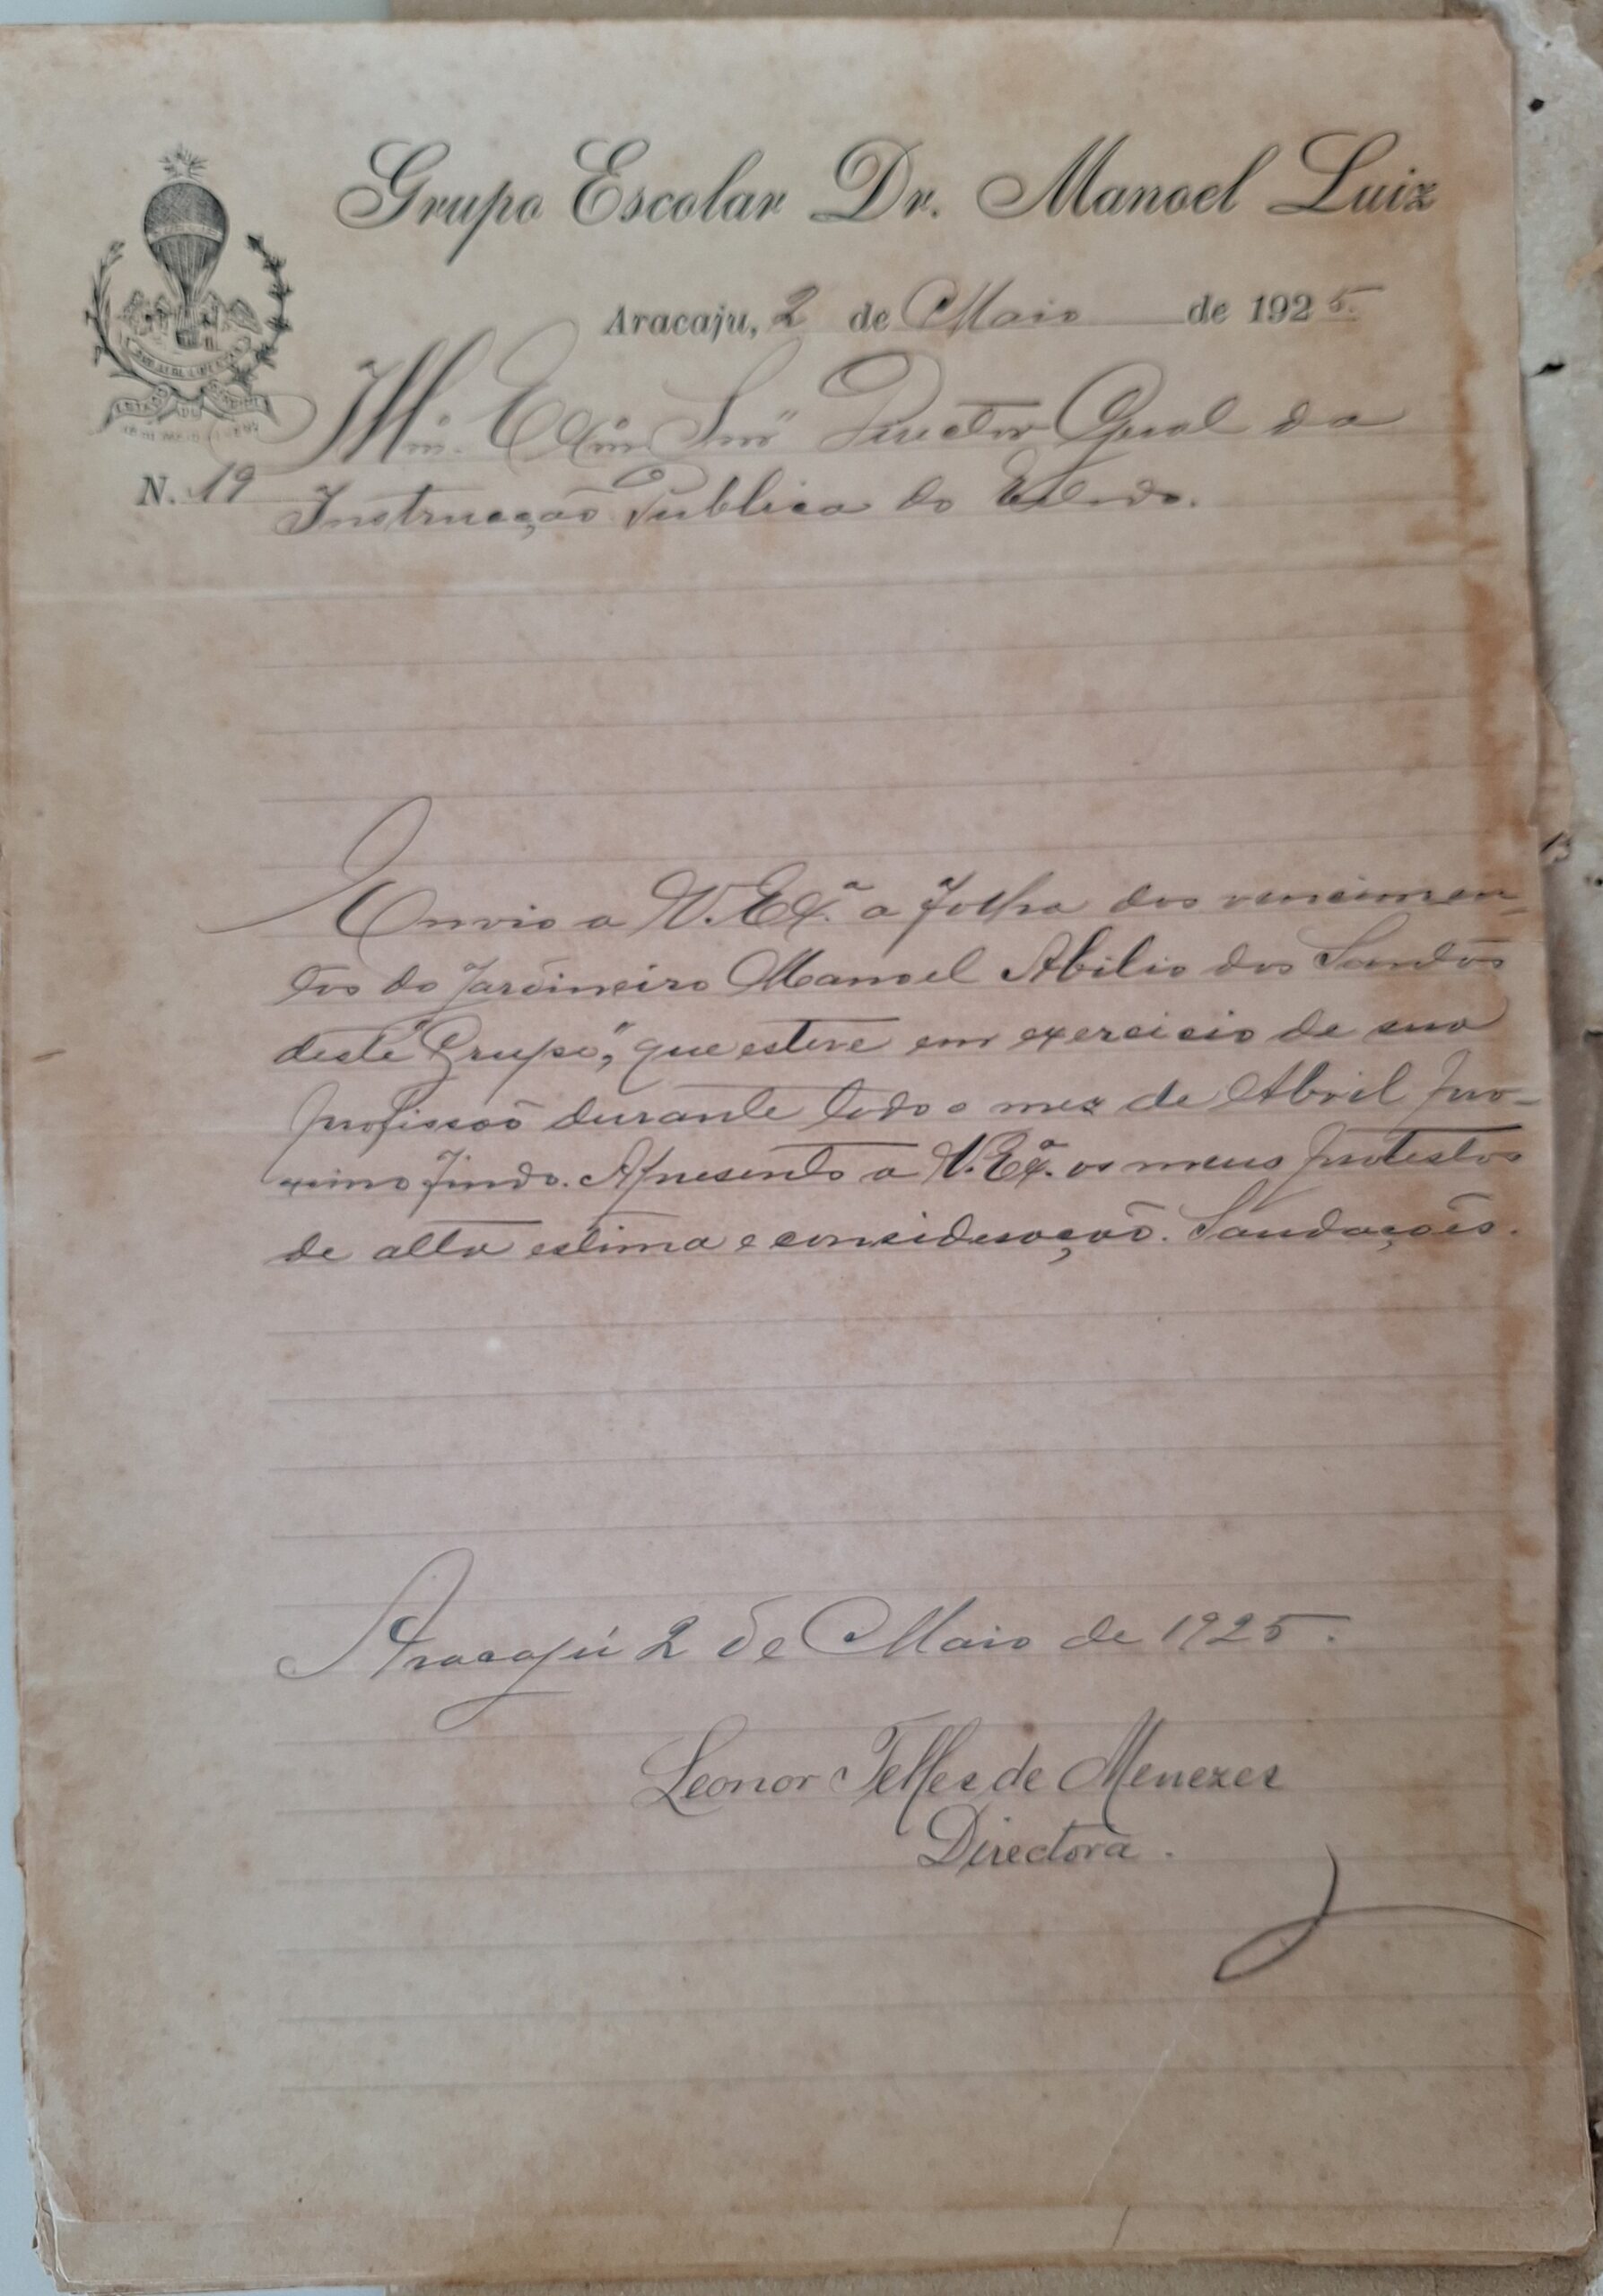 Grupo Escolar Dr. Manoel Luiz
Aracaju, 2 de Maio de 1925.
Illm. Exm. Snr. Director Geral da
N. 19 Instrucção Publica do Estado.
Envio a V. Exª. a folha dos vencimen-
tos do Jardineiro Manoel Abilio dos Santos
deste "Grupo", que esteve em exercicio de sua
profissão durante todo o mez de Abril pro-
ximo findo. Apresento a V. Exª. os meus protestos
de alta estima e consideração. Saudações.
Aracajú 2 de Maio de 1925.
Leonor Telles de Menezes
Directora.